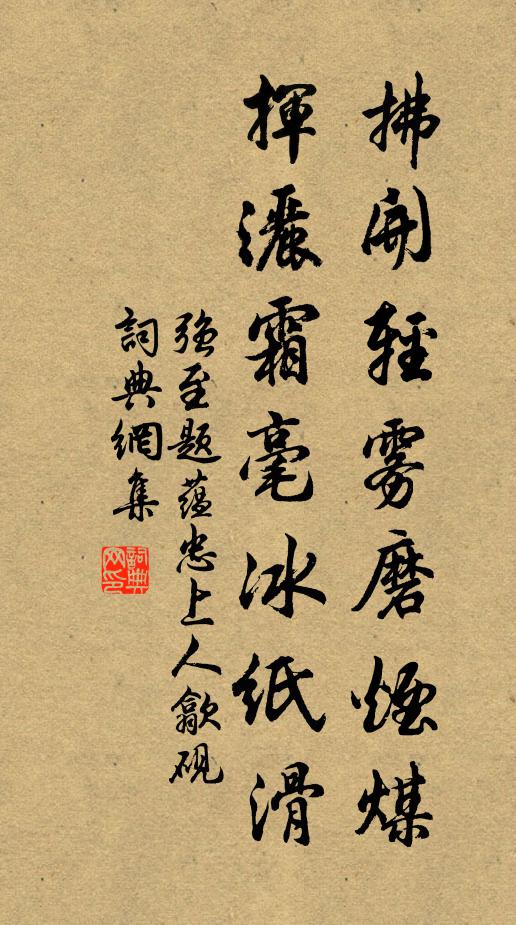 拂開輕雾磨煙煤
揮灑霜毫冰紙滑
強至題蕴忠上人歙硯
詞典網集
詞典網印